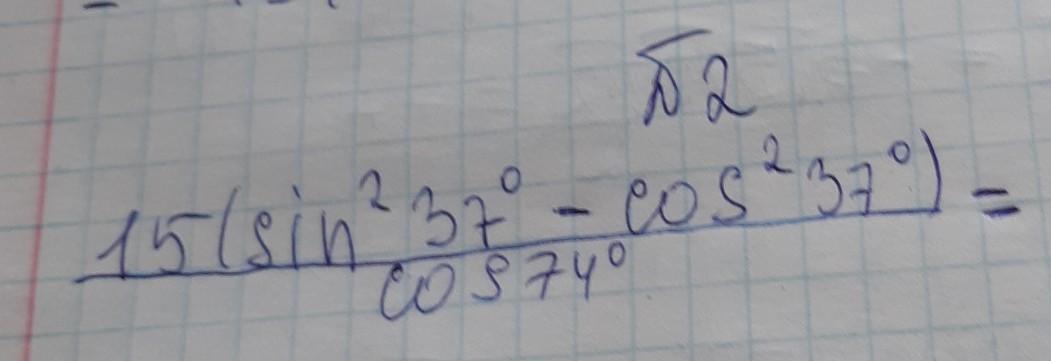 №2
15(sin²37° - cos²37°) =
cos74°